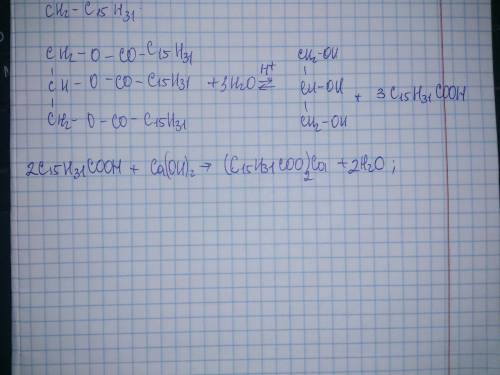 CH₂ - C₁₅H₃₁
CH₂ - O - CO - C₁₅H₃₁
CH - O - CO - C₁₅H₃₁ + 3H₂O ⇄ H⁺
CH₂ - O - CO - C₁₅H₃₁
CH₂ - OH
CH - OH + 3 C₁₅H₃₁COOH
CH₂ - OH
2C₁₅H₃₁COOH + Ca(OH)₂ → (C₁₅H₃₁COO)₂Ca + 2H₂O ;